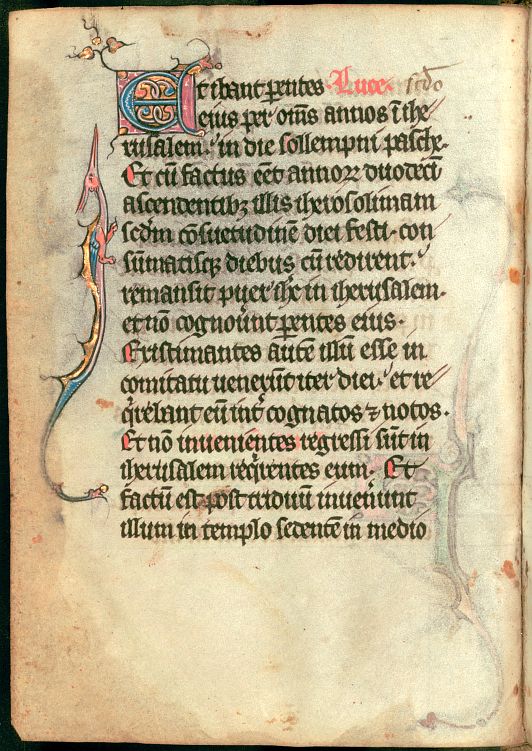 Et ibant pentes Luce. scdo
eius per oms annos i ihe
rusalem. in die sollempni pasche.
Et cu fact9 eet annoꝝ duodeci
ascendentibꝫ illis iherosolimam
scdm cosuetudine diei festi. con
sumatisqꝫ diebus cu redirent.
remansit puer ihc in iherusalem.
et no cognouut pentes eius.
Existimantes aute illu esse in
comitatu uenerut iter diei. et re
qirebant eu int cognatos ⁊ notos.
Et no inuenientes regressi sut in
iherusalem reqirentes eum. Et
factu est post triduu inuenut
illum in templo sedente in medio